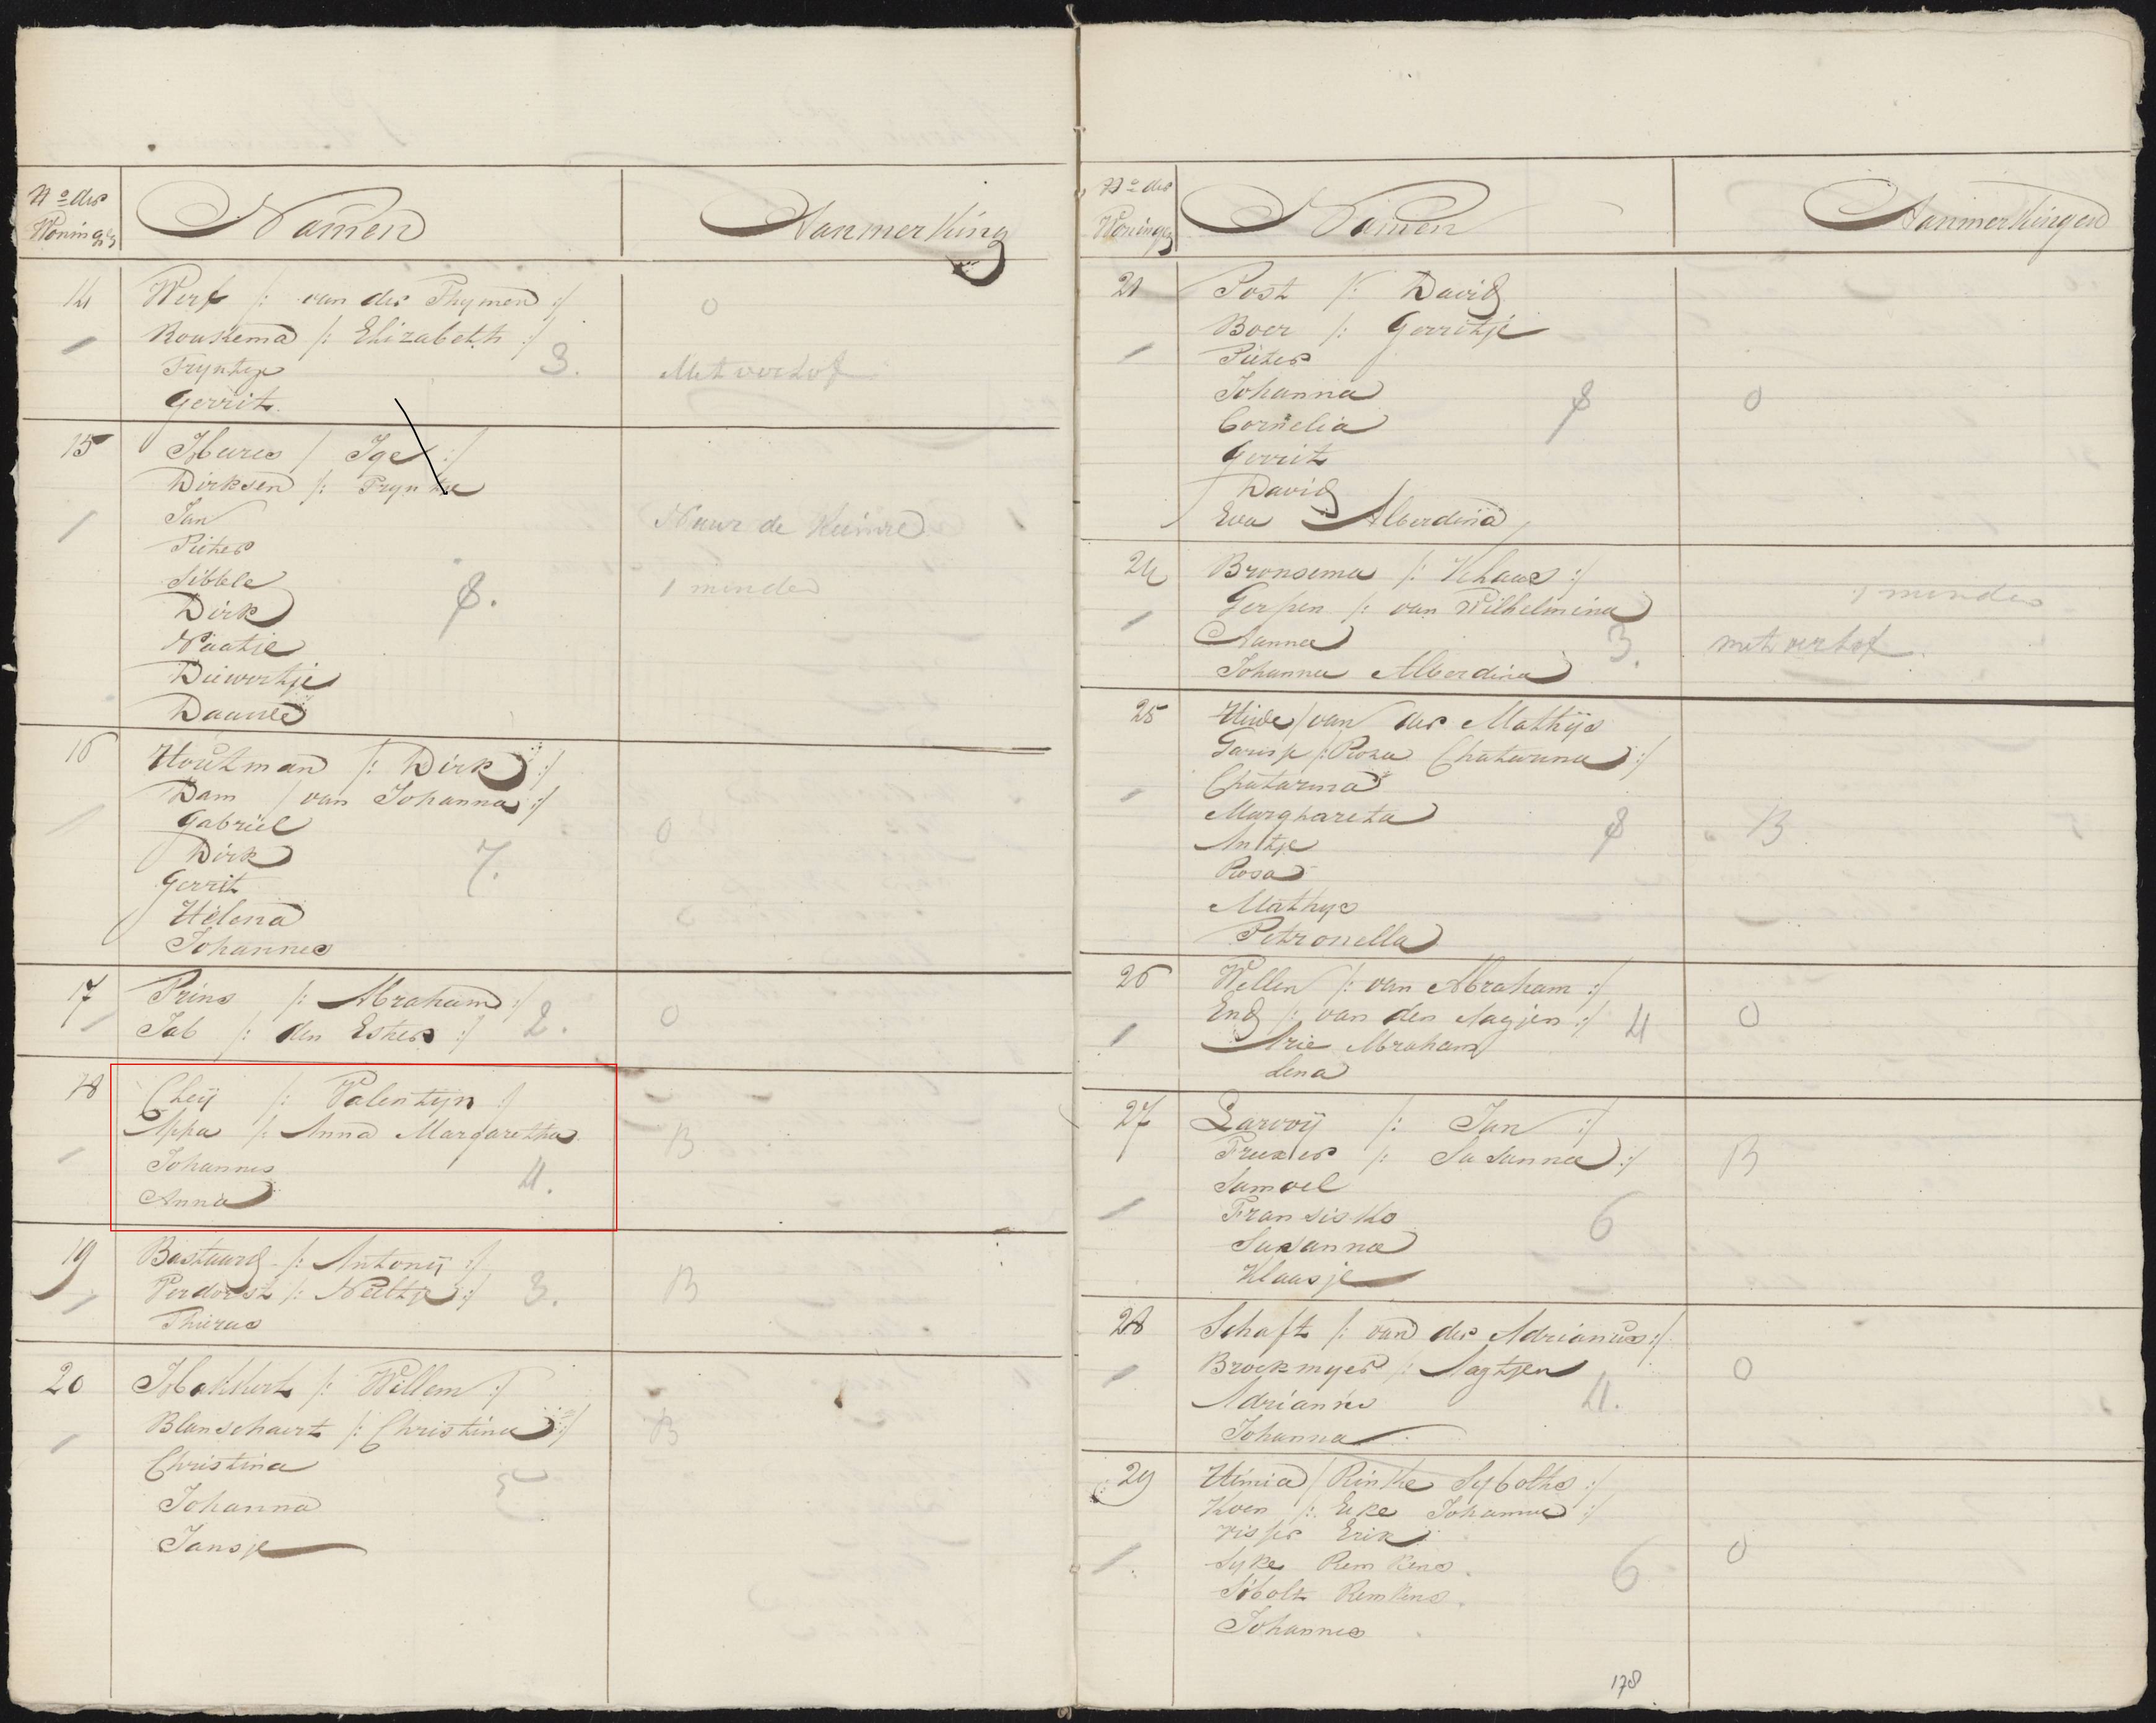 No der
Woningen
Namen
Aanmerking
14
Werf /: van der Thymen :/
Roukema /: Elizabeth :/
Tryntje
3.
Gerrit
0
Met verlof
15
Ige :/
Dirksen /: Tryntje
Jan
Pieter
Sibbele
Dirk
8.
Naatje
Diewertje
Daam
Naar de Kuinre
1 minder
16
Houtman /: Dirk :/
Dam / van Johanna :/
Gabriel
Dirk
7.
Gerrit
Helena
Johannes
0
0
17
Prins /: Abraham :/
Tab /: den Ester :/
2.
0
18
Cheij /: Valentyn :/
Appa /: Anna Margaretha
Johannes
4.
Anna
B
19
Bastuard /: Antonij :/
Verdorst /: Neeltje :/
3.
B
20
Willem :/
Blanschaert /: Christina :/
Christina
5
Johanna
Jansje
B
No der
Woningen
Namen
Aanmerkingen
21
Post /: David
Boer /: Gerritje
Pieter
Johanna
8
0
Cornelia
Gerrit
David
Eva Alberdina
24
Bronsema /: Klaas :/
Gerpen /: van Wilhelmina
Hanna
3.
Johanna Alberdina
1 minder
met verlof
25
Heide / van der Mathijs
Garisp /: Roza Chatarina :/
Chatarina
Marghareta
8
B
Antje
Rosa
Mathys
Petronella
26
Wellen /: van Abraham :/
End /: van den Aagjen :/
4
0
Arie Abraham
Lena
27
Larooij /: Jan :/
Susanna :/
B
Samoel
Fransisko
6
Susanna
Klaasje
28
Schaft /: van der Adrianus :/
Broekmyer /: Aagtjen
0
Adrianus
4.
Johanna
29
Himia / Rintke Sybolts :/
Koen /: Eke Johanna :/
Erik
Syke Remkens
6
0
Sibolt Remkens
Johannes
178